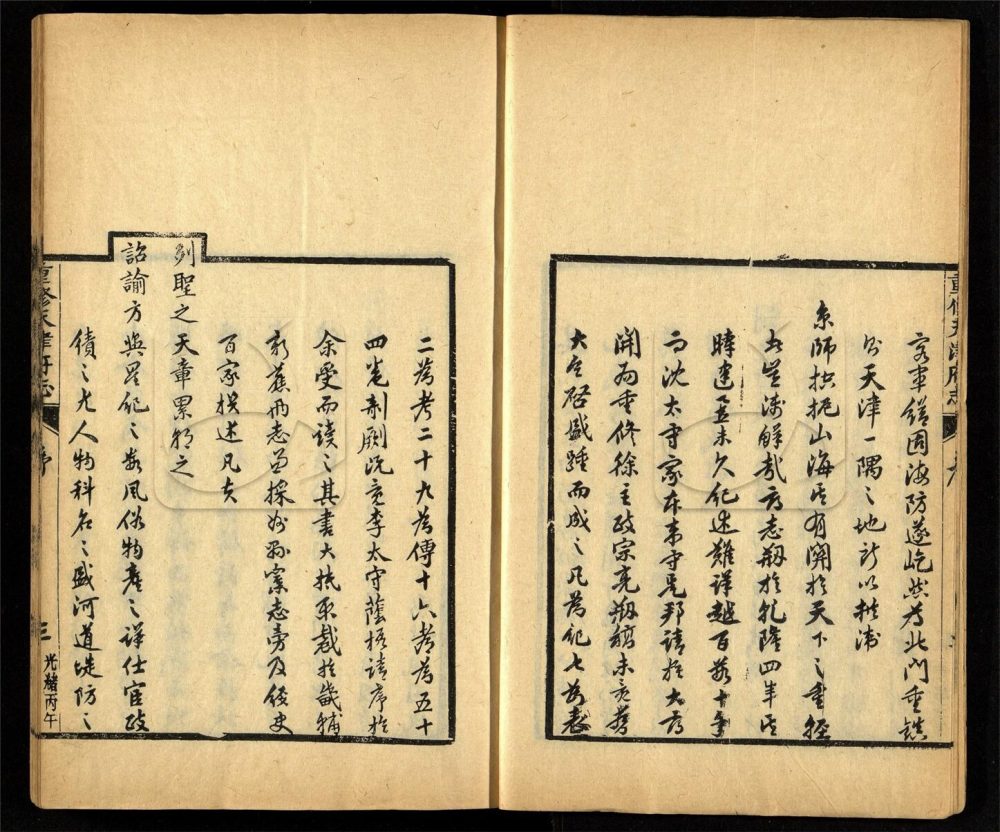 重修天津府志
軍繕固海防遂屹然為北門重鎮
則天津一隅之地所以拱衛
京師控扼山海其有關於天下之重輕
者豈淺鮮哉府志刱於乾隆四年其
時建置未久紀述難詳越百數十年
而沈太守家本來守是邦請於大府
開局重修徐主政宗亮刱稿未竟蔡
大令啟盛踵而成之凡為紀七為表
二為考二十九為傳十六考為五十
四卷剞劂既竟李太守蔭梧請序於
余受而讀之其書大抵取裁於畿輔
新舊兩志而採州縣案志旁及稗史
百家撰述凡夫
列聖之天章累朝之
詔諭方輿星紀之數風俗物產之詳仕宦政
績之尤人物科名之盛河道堤防之
重修天津府志 序 三 光緒丙午